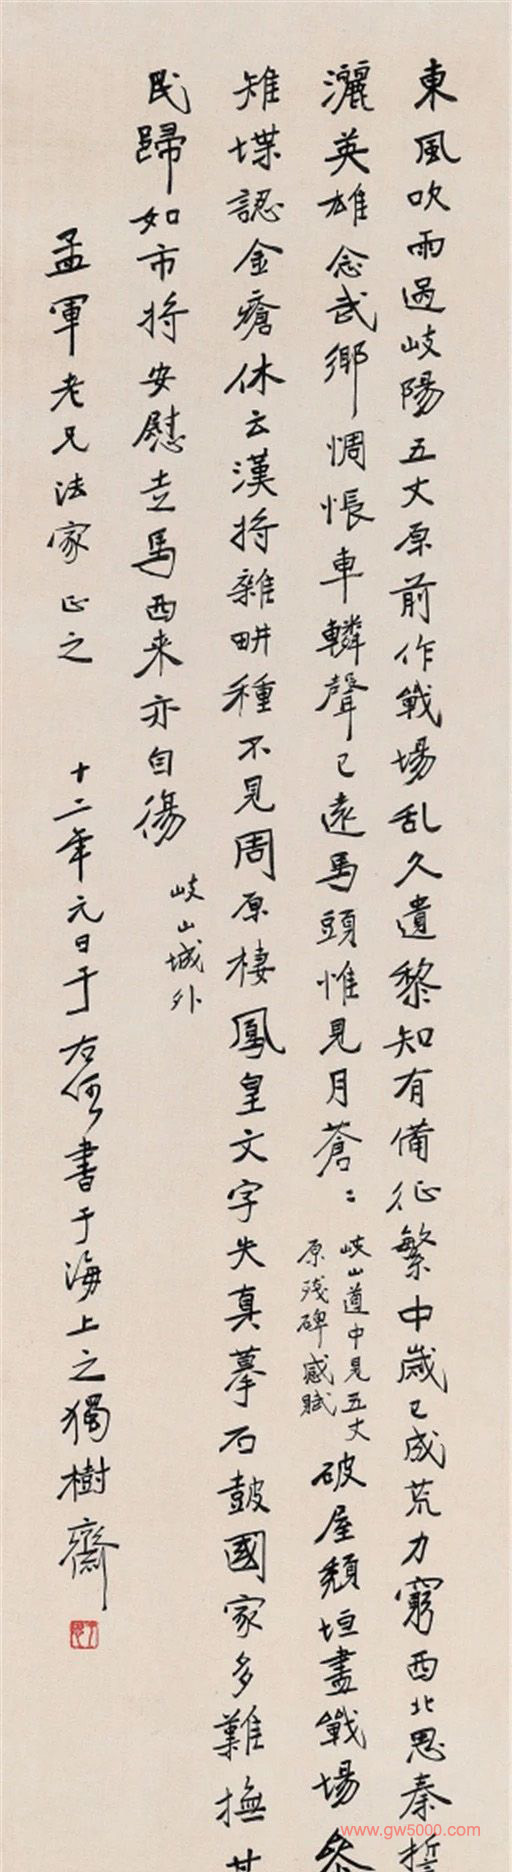 東風吹雨過岐陽五丈原前作戰場乱久遺黎知有備征繁中歲已成荒力窮西北思秦誓
灑英雄念武鄉惆悵車轔聲已遠馬頭惟見月蒼〻
岐山道中見五丈
原殘碑感賦
破屋頹垣盡戰場
雉堞認金瘡休云漢将雜畊種不見周原棲鳳皇文字失真摹石鼓國家多難撫
民歸如市将安慰走馬西来亦自傷
岐山城外
孟軍老兄法家正之
十二年元日于右任書于海上之獨樹齋
www.gw5000.com